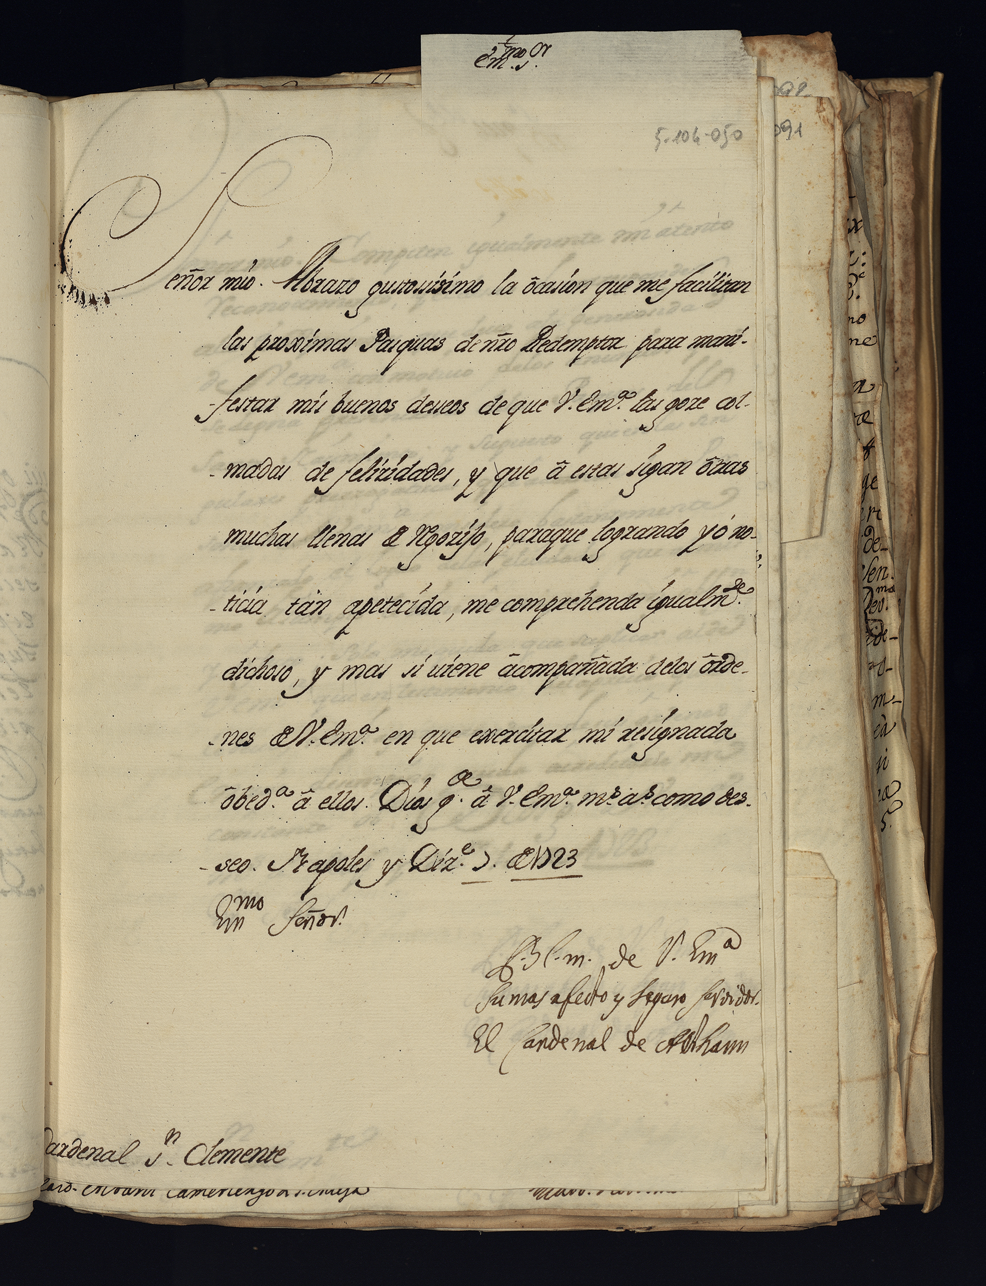 Em.mo S.or
5-104-050
091
Señor mío. Abrazo gustosísimo la ocasíon que me facilitan
las proxímas Pasquas de nro Redemptor para mani-
festar mis buenos deseos de que V. Em.a las goze col-
-madas de felicidades, y que â estas sigan ôtras
muchas llenas de regozijo, paraque logrando yó no-
-ticia tan apetecida, me comprehenda igualm.te
dichoso, y mas si viene âcompañada de los ôrde-
-nes de V. Em.a en que exercitar mi resignada
ôbed.a â ellos. Dios g.de â V. Em.a m.s a.s como des-
-seo. Napoles y Diz.e 3. de 1723
Em.mo Señor.
B. l. m. de V. Em.a
su mas afecto y seguro servidor
El Cardenal de Althann
Cardenal S.n Clemente